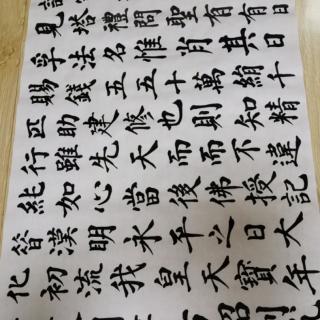 見塔禮問聖有有
孚法名惟肖其日
賜錢五五十萬絹千
匹助建修也則知精
行雖先天而而不違
純如心當後佛授記
昝漢明永平之日大
化初流我皇天寶年